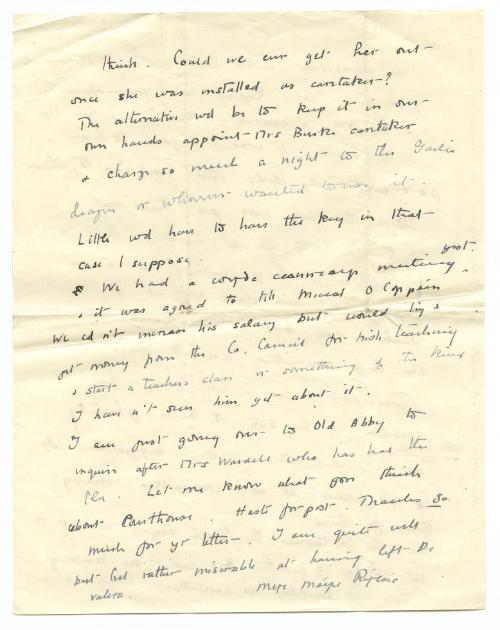 think. Could we ever get her out
once she was installed as caretaker?
The alternative wd be to keep it in our
own hands appoint Mrs Burke caretaker
& charge so much a night to the Gaelic
League or whoever wanted to use it.
Little wd have to have the key in that
case I suppose.
We had a meeting yest.
& it was agreed to tell Miceal O
We cd n't increase his salary but would try &
get money from the Co. Council for Irish teaching
& start a teachers class or something of the kind
I have n't seen him yet about it.
I am just going over to Old Abby to
inquire after Mrs Wardell who has had the
flu. Let me know what you think
about Courthouse. Haste for post. Thanks so
much for yr letter. I am quite well
but feel rather miserable at having left De
Valera.